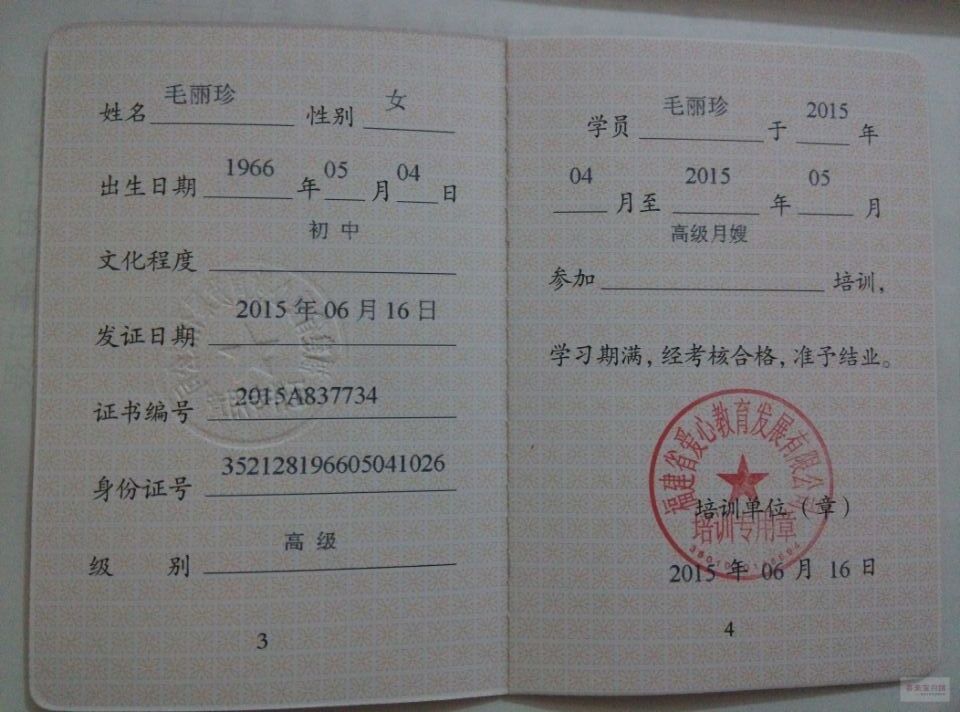 姓名 毛丽珍 性别 女
出生日期 1966 年 05 月 04 日
文化程度 初中
发证日期 2015 年 06 月 16 日
证书编号 2015A837734
身份证号 352128196605041026
级别 高级
3
学员 毛丽珍 于 2015 年
04 月至 2015 年 05 月
参加 高级月嫂 培训,
学习期满,经考核合格,准予结业。
福建省爱心教育发展有限公司
培训单位(章)
培训专用章
2015 年 06 月 16 日
4